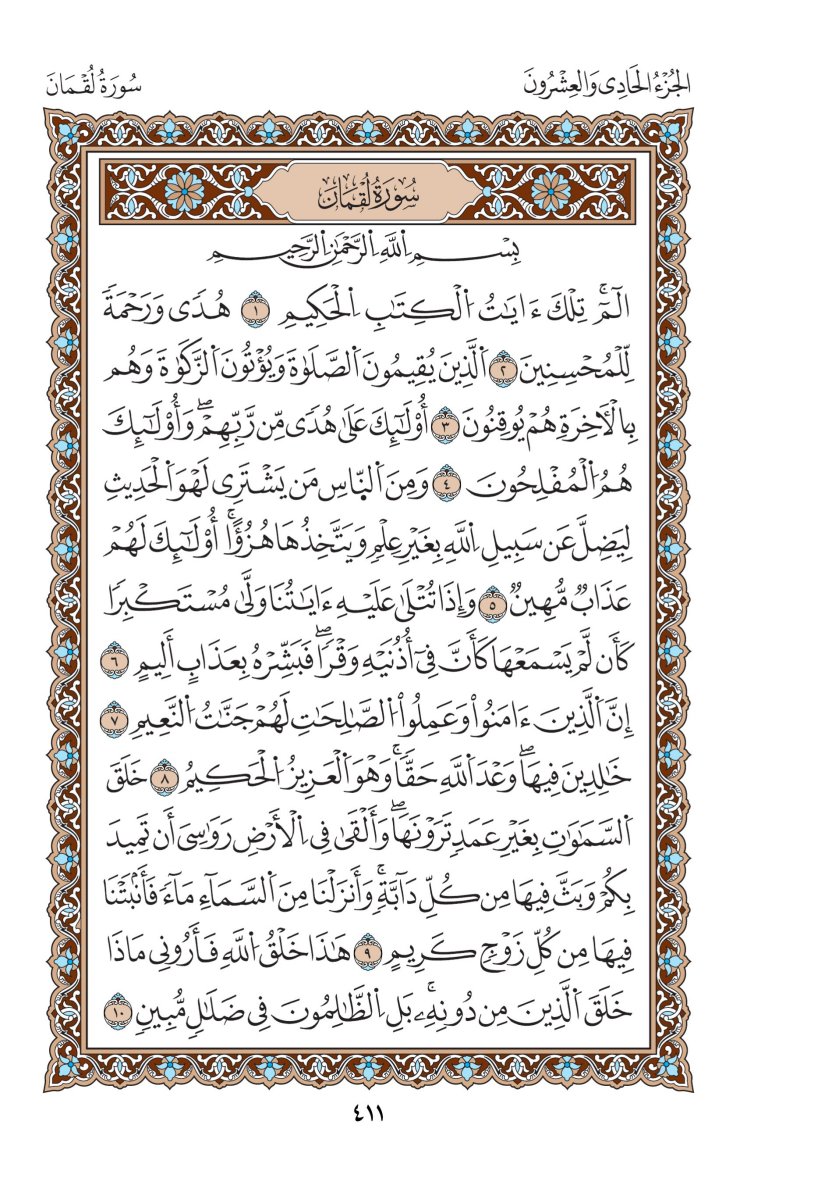 الجُزْءُ الحَادِى وَالعِشْرُونَ
سُورَةُ لُقْمَانَ
سُورَةُ لُقْمَانَ
بِسْمِ اِ۬للَّهِ اِ۬لرَّحْمَٰنِ اِ۬لرَّحِيمِ
الٓمٓۚ تِلْكَ ءَايَٰتُ اُ۬لْكِتَٰبِ اِ۬لْحَكِيمِ ١ هُدٗى وَرَحْمَةٗ
لِّلْمُحْسِنِينَ ٢ اَ۬لَّذِينَ يُقِيمُونَ اَ۬لصَّلَوٰةَ وَيُؤْتُونَ اَ۬لزَّكَوٰةَ وَهُم
بِالْأٓخِرَةِ هُمْ يُوقِنُونَ ٣ أُوْلَٰٓئِكَ عَلَىٰ هُدٗى مِّن رَّبِّهِمْۖ وَأُوْلَٰٓئِكَ
هُمُ اُ۬لْمُفْلِحُونَ ٤ وَمِنَ اَ۬لنَّاسِ مَن يَشْتَرِى لَهْوَ اَ۬لْحَدِيثِ
لِيَضِلَّ عَن سَبِيلِ اِ۬للَّهِ بِغَيْرِ عِلْمٖ وَيَتَّخِذُهَا هُزُؤًاۚ أُوْلَٰٓئِكَ لَهُمْ
عَذَابٞ مُّهِينٞ ٥ وَإِذَا تُتْلَىٰ عَلَيْهِ ءَايَٰتُنَا وَلَّىٰ مُسْتَكْبِرٗا
كَأَن لَّمْ يَسْمَعْهَا كَأَنَّ فِىٓ أُذُنَيْهِ وَقْرٗاۖ فَبَشِّرْهُ بِعَذَابٍ أَلِيمٍ ٦
إِنَّ اَ۬لَّذِينَ ءَامَنُواْ وَعَمِلُواْ اُ۬لصَّٰلِحَٰتِ لَهُمْ جَنَّٰتُ اُ۬لنَّعِيمِ ٧
خَٰلِدِينَ فِيهَاۖ وَعْدَ اَ۬للَّهِ حَقّٗاۚ وَهْوَ اَ۬لْعَزِيزُ اُ۬لْحَكِيمُ ٨ خَلَقَ
اَ۬لسَّمَٰوَٰتِ بِغَيْرِ عَمَدٖ تَرَوْنَهَاۖ وَأَلْقَىٰ فِى اِ۬لْأَرْضِ رَوَٰسِىَ أَن تَمِيدَ
بِكُمْ وَبَثَّ فِيهَا مِن كُلِّ دَآبَّةٖۚ وَأَنزَلْنَا مِنَ اَ۬لسَّمَآءِ مَآءٗ فَأَنۢبَتْنَا
فِيهَا مِن كُلِّ زَوْجٖ كَرِيمٍ ٩ هَٰذَا خَلْقُ اُ۬للَّهِ فَأَرُونِى مَاذَا
خَلَقَ اَ۬لَّذِينَ مِن دُونِهِۦۚ بَلِ اِ۬لظَّٰلِمُونَ فِى ضَلَٰلٖ مُّبِينٖ ١٠
٤١١